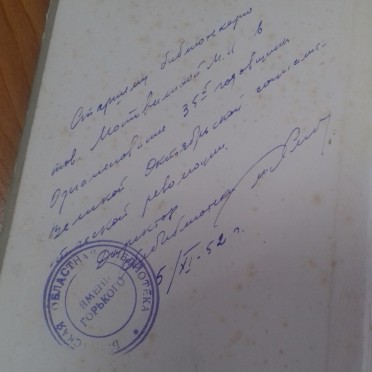 Старшему библиотекарю
тов. Матвеиной М.И. в
Ознаменование 35й годовщины
Великой Октябрьской социалис-
тической революции.
Директор
Облбиблиотеки
6/XI-52 г.
СКАЯ ОБЛАСТНАЯ БИБЛИОТЕКА
ИМЕНИ
ГОРЬКОГО